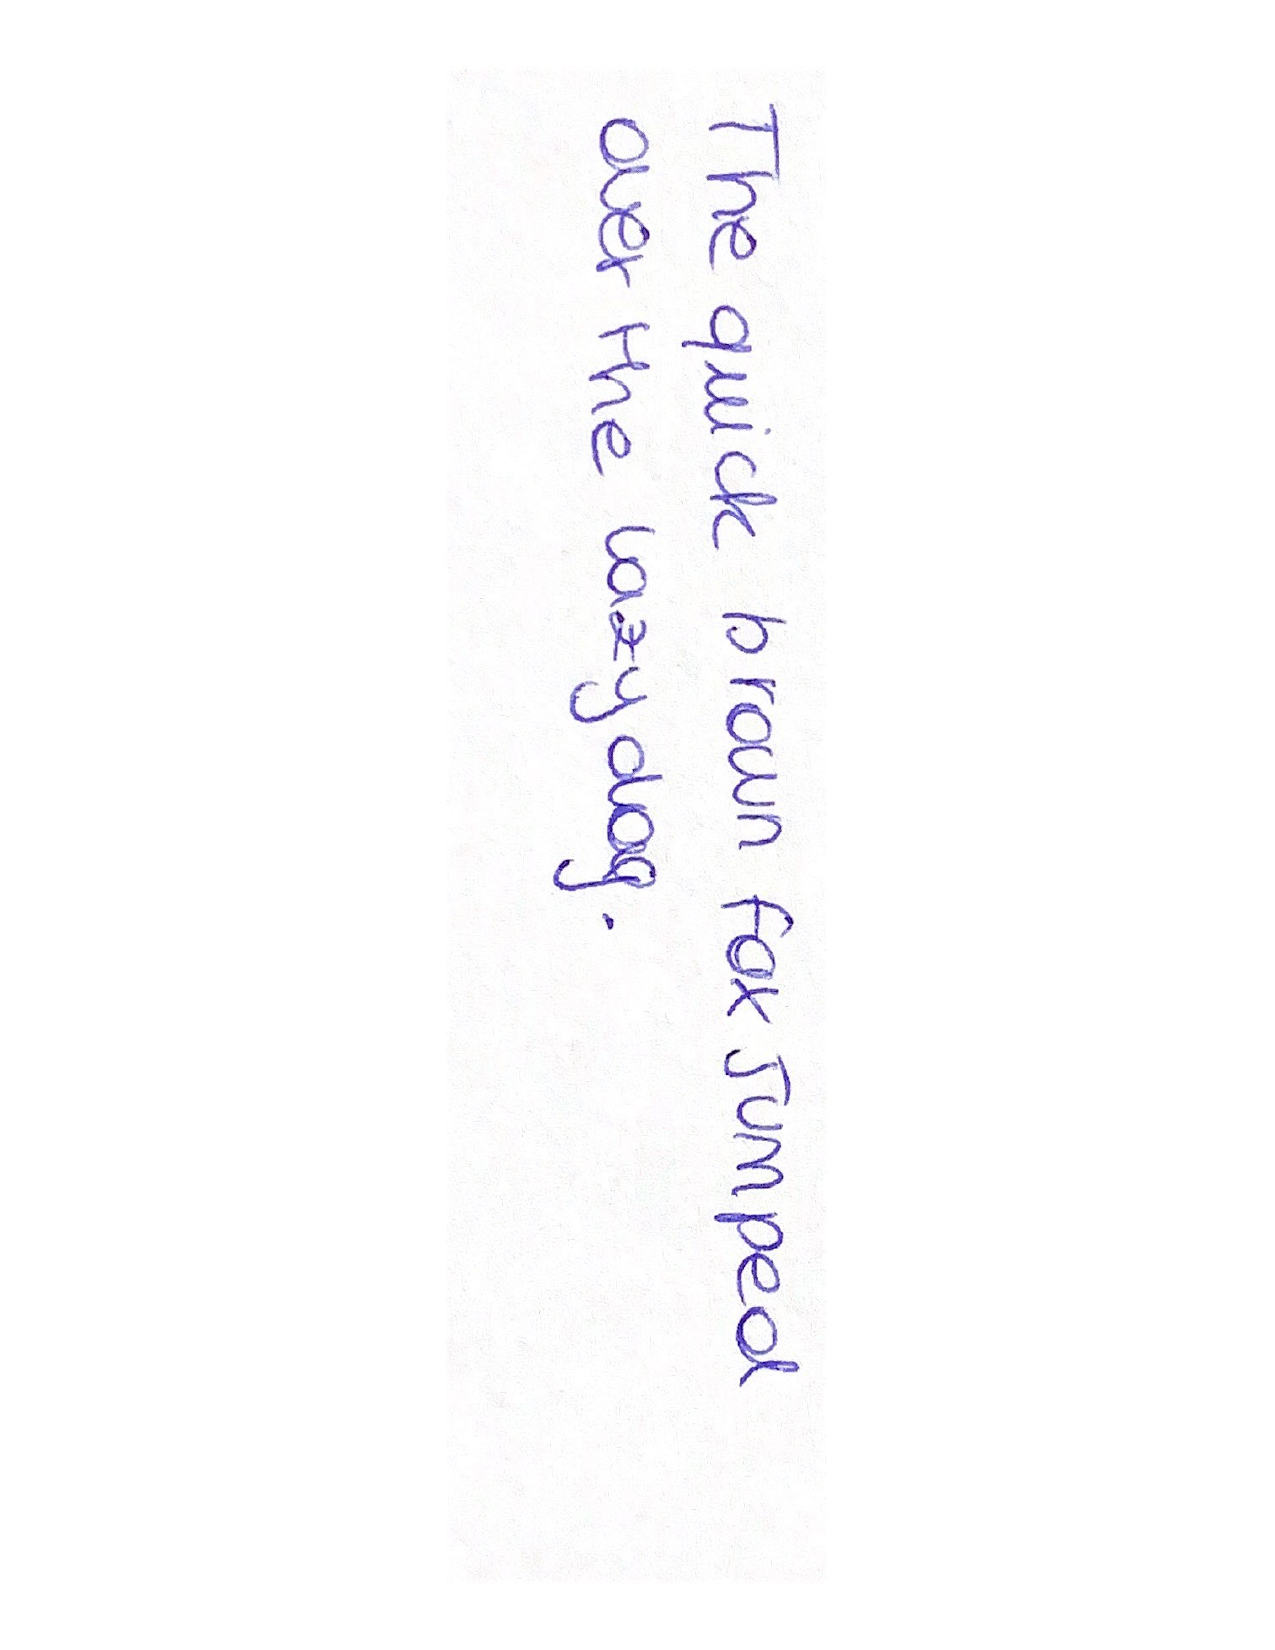 The quick brown fox Jumped
over the lazy dog.